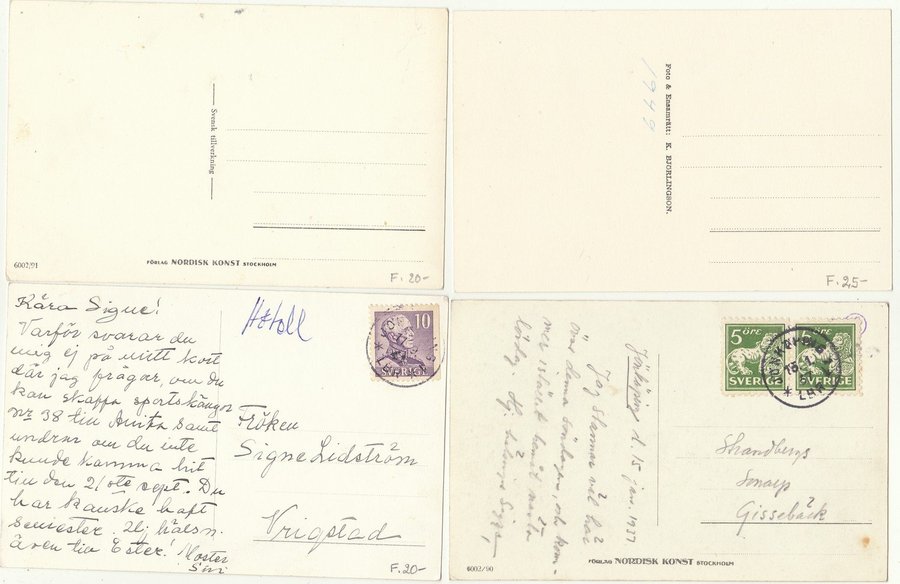 Svensk tillverkning
6002/91
FÖRLAG NORDISK KONST STOCKHOLM
F.20-
Foto & Ensamrätt: K. BJÖRLINGSON.
1949
F.25-
Kära Signe!
Varför svarar du
mig ej på mitt kort
där jag frågar, om du
kan skaffa sportskängor
nr 38 till Anita samt
undrar om du inte
kunde komma hit
till den 21/ste sept. Du
har kanske haft
semester. Hj hälsn.
även till Ester!
Moster
Siri
10
SVERIGE
Fröken
Signe Lidström
Vrigstad
F.20-
Jönköping d. 15 jan. 1937
Jag stannar väl här
över denna söndagen, och kom-
mer istället hem nästa
lördag. Hj. hälsningar
5 ÖRE
SVERIGE
5 ÖRE
SVERIGE
JÖNKÖPING
Strandbergs
Gissebäck
6002/90
FÖRLAG NORDISK KONST STOCKHOLM